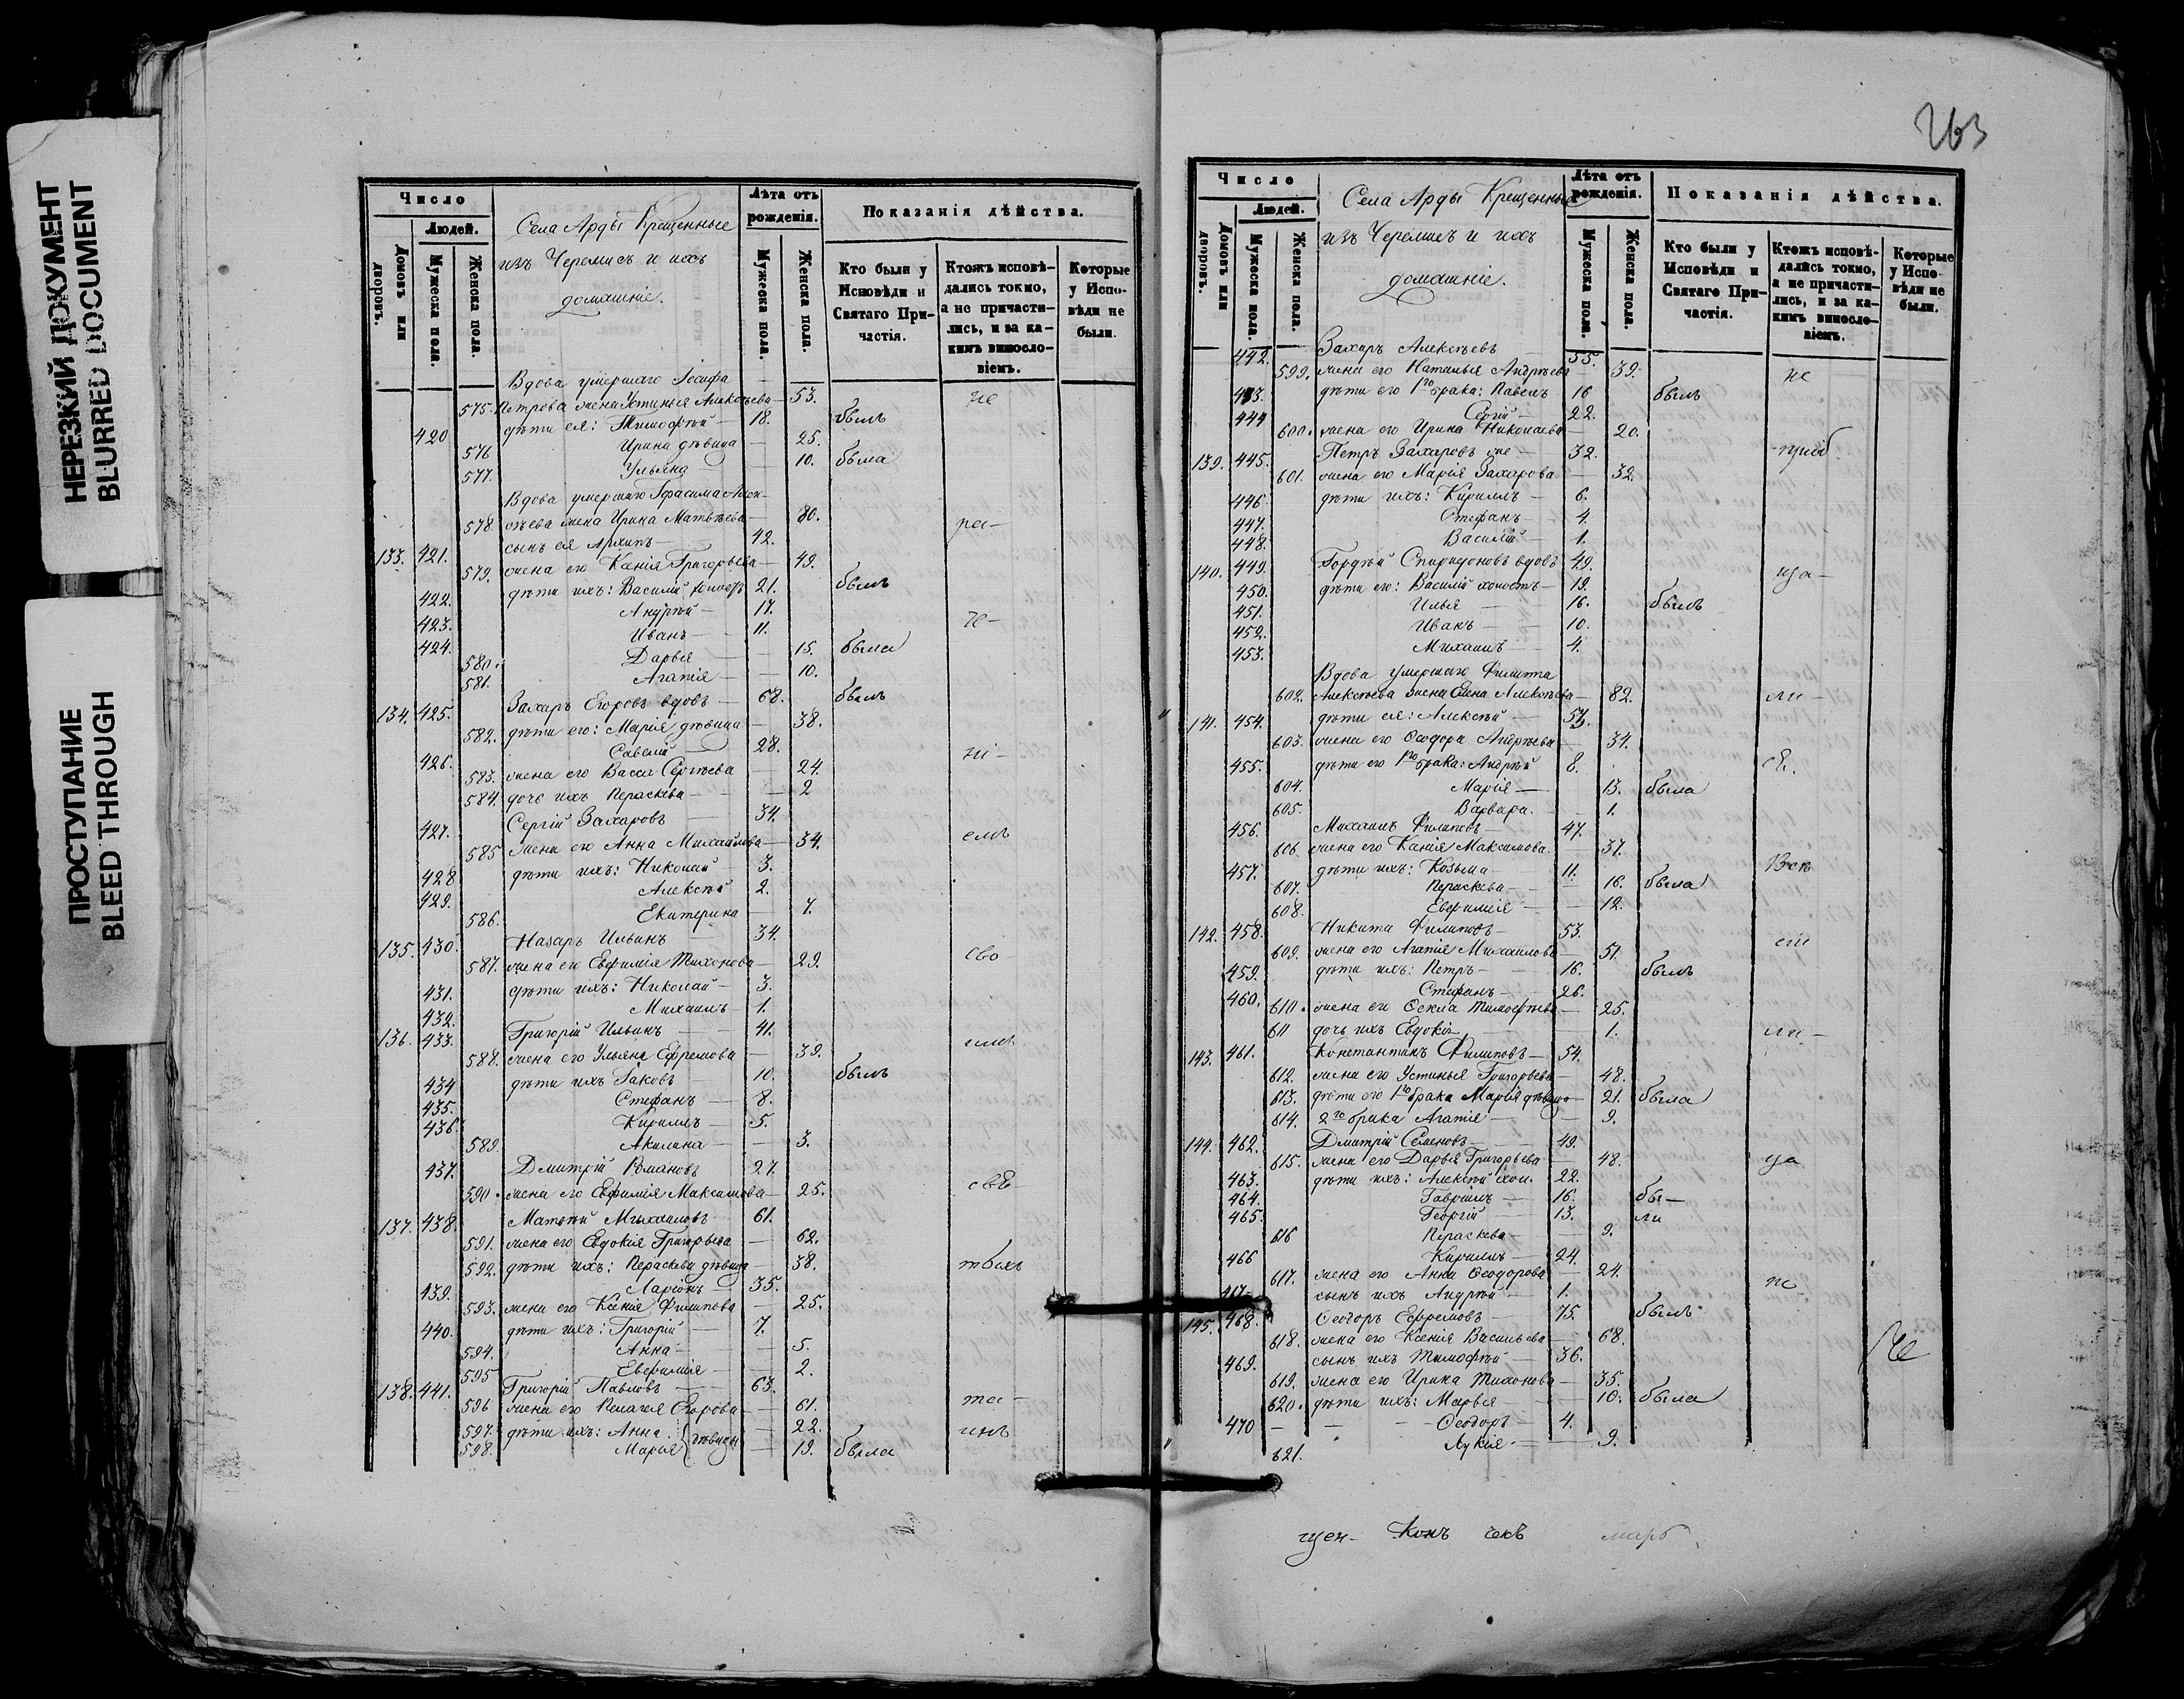 НЕРЕЗКИЙ ДОКУМЕНТ
BLURRED DOCUMENT
ПРОСТУПАНИЕ
BLEED THROUGH
Число
Людей.
Домовъ или дворовъ.
Мужеска пола.
Женска пола.
Села Арды Крещенные
изъ Черемисъ и ихъ
домашніе.
Лѣта отъ рожденія.
Мужеска пола.
Женска пола.
Показанія дѣйства.
Кто были у Исповѣди и Святаго Причастія.
Ктожъ исповѣдались токмо, а не причастились, и за какимъ винословіемъ.
Которые у Исповѣди не были.
Вдова умершаго Іосифа
575. Петрова жена Устинья Алексѣева — 53. не
420 дѣти ея: Тимофѣй — 18. былъ
576 Ирина дѣвица — 25.
577. Ульяна — 10. была
Вдова умершаго Герасима Алек-
578. сѣева жена Ирина Матвѣева — 80. ра-
133. 421. сынъ ея Архипъ — 42.
579. жена его Ксенія Григорьева — 49.
422. дѣти ихъ: Василій холостъ 21. былъ
423. Андрей — 17. че-
424. Иванъ — 11.
580. Дарья — 15. была
581. Агапія — 10.
134. 425. Захаръ Егоровъ вдовъ — 68. былъ
582. дѣти его: Марія дѣвица — 38.
426. Савелій — 28. ні-
583. жена его Васса Сергѣева — 24.
584. дочь ихъ Пераскева — 2
427. Сергій Захаровъ — 34.
585 жена его Анна Михайлова — 34. емъ
428 дѣти ихъ: Николай 3.
429. Алексѣй 2.
586. Екатерина — 7.
135. 430. Назаръ Ильинъ — 34.
587. жена его Евфимія Тихонова — 29. сво
431. дѣти ихъ: Николай — 3.
432. Михаилъ — 1.
136. 433. Григорій Ильинъ — 41.
588. жена его Ульяна Ефремова — 39. имъ
434 дѣти ихъ Іаковъ — 10. былъ
435. Стефанъ — 8.
436. Кириллъ — 5.
589. Акилина — 3.
437. Дмитрій Романовъ 27.
590. жена его Евфимія Максимова — 25. свѣ-
137. 438. Матвѣй Михаиловъ 61.
591. жена его Евдокія Григорьева — 62.
592. дѣти ихъ: Пераскева дѣвица — 38.
439. Ларіонъ — 35.
593. жена его Ксенія Филипова — 25.
440. дѣти ихъ: Григорій — 7.
594. Анна — 5.
595 Евфимія — 2.
138. 441. Григорій Павловъ — 63.
596 жена его Пелагея Егорова — 61. та-
597. дѣти ихъ: Анна дѣвицы — 22. инъ
598. Марія — 19. была
263
Число
Людей.
Домовъ или дворовъ.
Мужеска пола.
Женска пола.
Села Арды Крещенные
изъ Черемисъ и ихъ
домашніе.
Лѣта отъ рожденія.
Мужеска пола.
Женска пола.
Показанія дѣйства.
Кто были у Исповѣди и Святаго Причастія.
Ктожъ исповѣдались токмо, а не причастились, и за какимъ винословіемъ.
Которые у Исповѣди не были.
442. Захаръ Алексѣевъ — 55.
599. жена его Наталья Андреева 39. не
443. дѣти его 1го брака: Павелъ 16 былъ
444 Сергій — 22.
600. жена его Ирина Николаева — 20.
139. 445. Петръ Захаровъ же — 32.
601. жена его Марія Захарова — 32.
446 дѣти ихъ: Кириллъ — 6.
447. Стефанъ — 4.
448. Василій — 1.
140. 449. Гордѣй Спиридоновъ вдовъ 49. ща-
450. дѣти его: Василій холостъ — 19.
451. Илья — 16. былъ
452. Иванъ — 10.
453. Михаилъ — 4.
Вдова умершаго Филиппа
602. Алексѣева жена Елена Алексѣева — 82. ли-
141. 454. дѣти ея: Алексѣй —
603. жена его Ѳеодора Андреева 34.
455. дѣти его 1го брака: Андрей 8.
604. Марія — 13. была
605. Варвара. — 1.
456. Михаилъ Филиповъ — 47.
606. жена его Ксенія Максимова. — 37.
457. дѣти ихъ: Козьма 11.
607. Пераскева — 16. была
608. Евфимія — 12.
142. 458. Никита Филиповъ — 53.
609. жена его Агапія Михаилова — 51.
459. дѣти ихъ: Петръ — 16. былъ
460. Стефанъ — 26.
610. жена его Ѳекла Тимофѣева — 25.
611 дочь ихъ Евдокія — 1. ли-
143. 461. Константинъ Филиповъ — 54.
612. жена его Устинья Григорьева — 48.
613. дѣти его 1го брака Марія дѣвица — 21. была
614. 2го брака Агапія — 9.
144. 462. Дмитрій Семеновъ — 49.
615. жена его Дарья Григорьева — 48. ца
463. дѣти ихъ: Алексѣй хол. 22.
464. Гавріилъ — 16. бы-
465. Георгій — 13. ли
616 Пераскева — 9.
466 Кириллъ — 24.
617. жена его Анна Ѳеодорова — 24.
467 сынъ ихъ Андрей — 1.
145. 468. Ѳеодоръ Ефремовъ — 75. былъ
618. жена его Ксенія Васильева — 68.
469. сынъ ихъ Тимофѣй — 36. Не
619. жена его Ирина Тихонова — 35.
620. дѣти ихъ: Марья — 10. была
470 Ѳеодоръ — 4.
621. Лукія — 9.